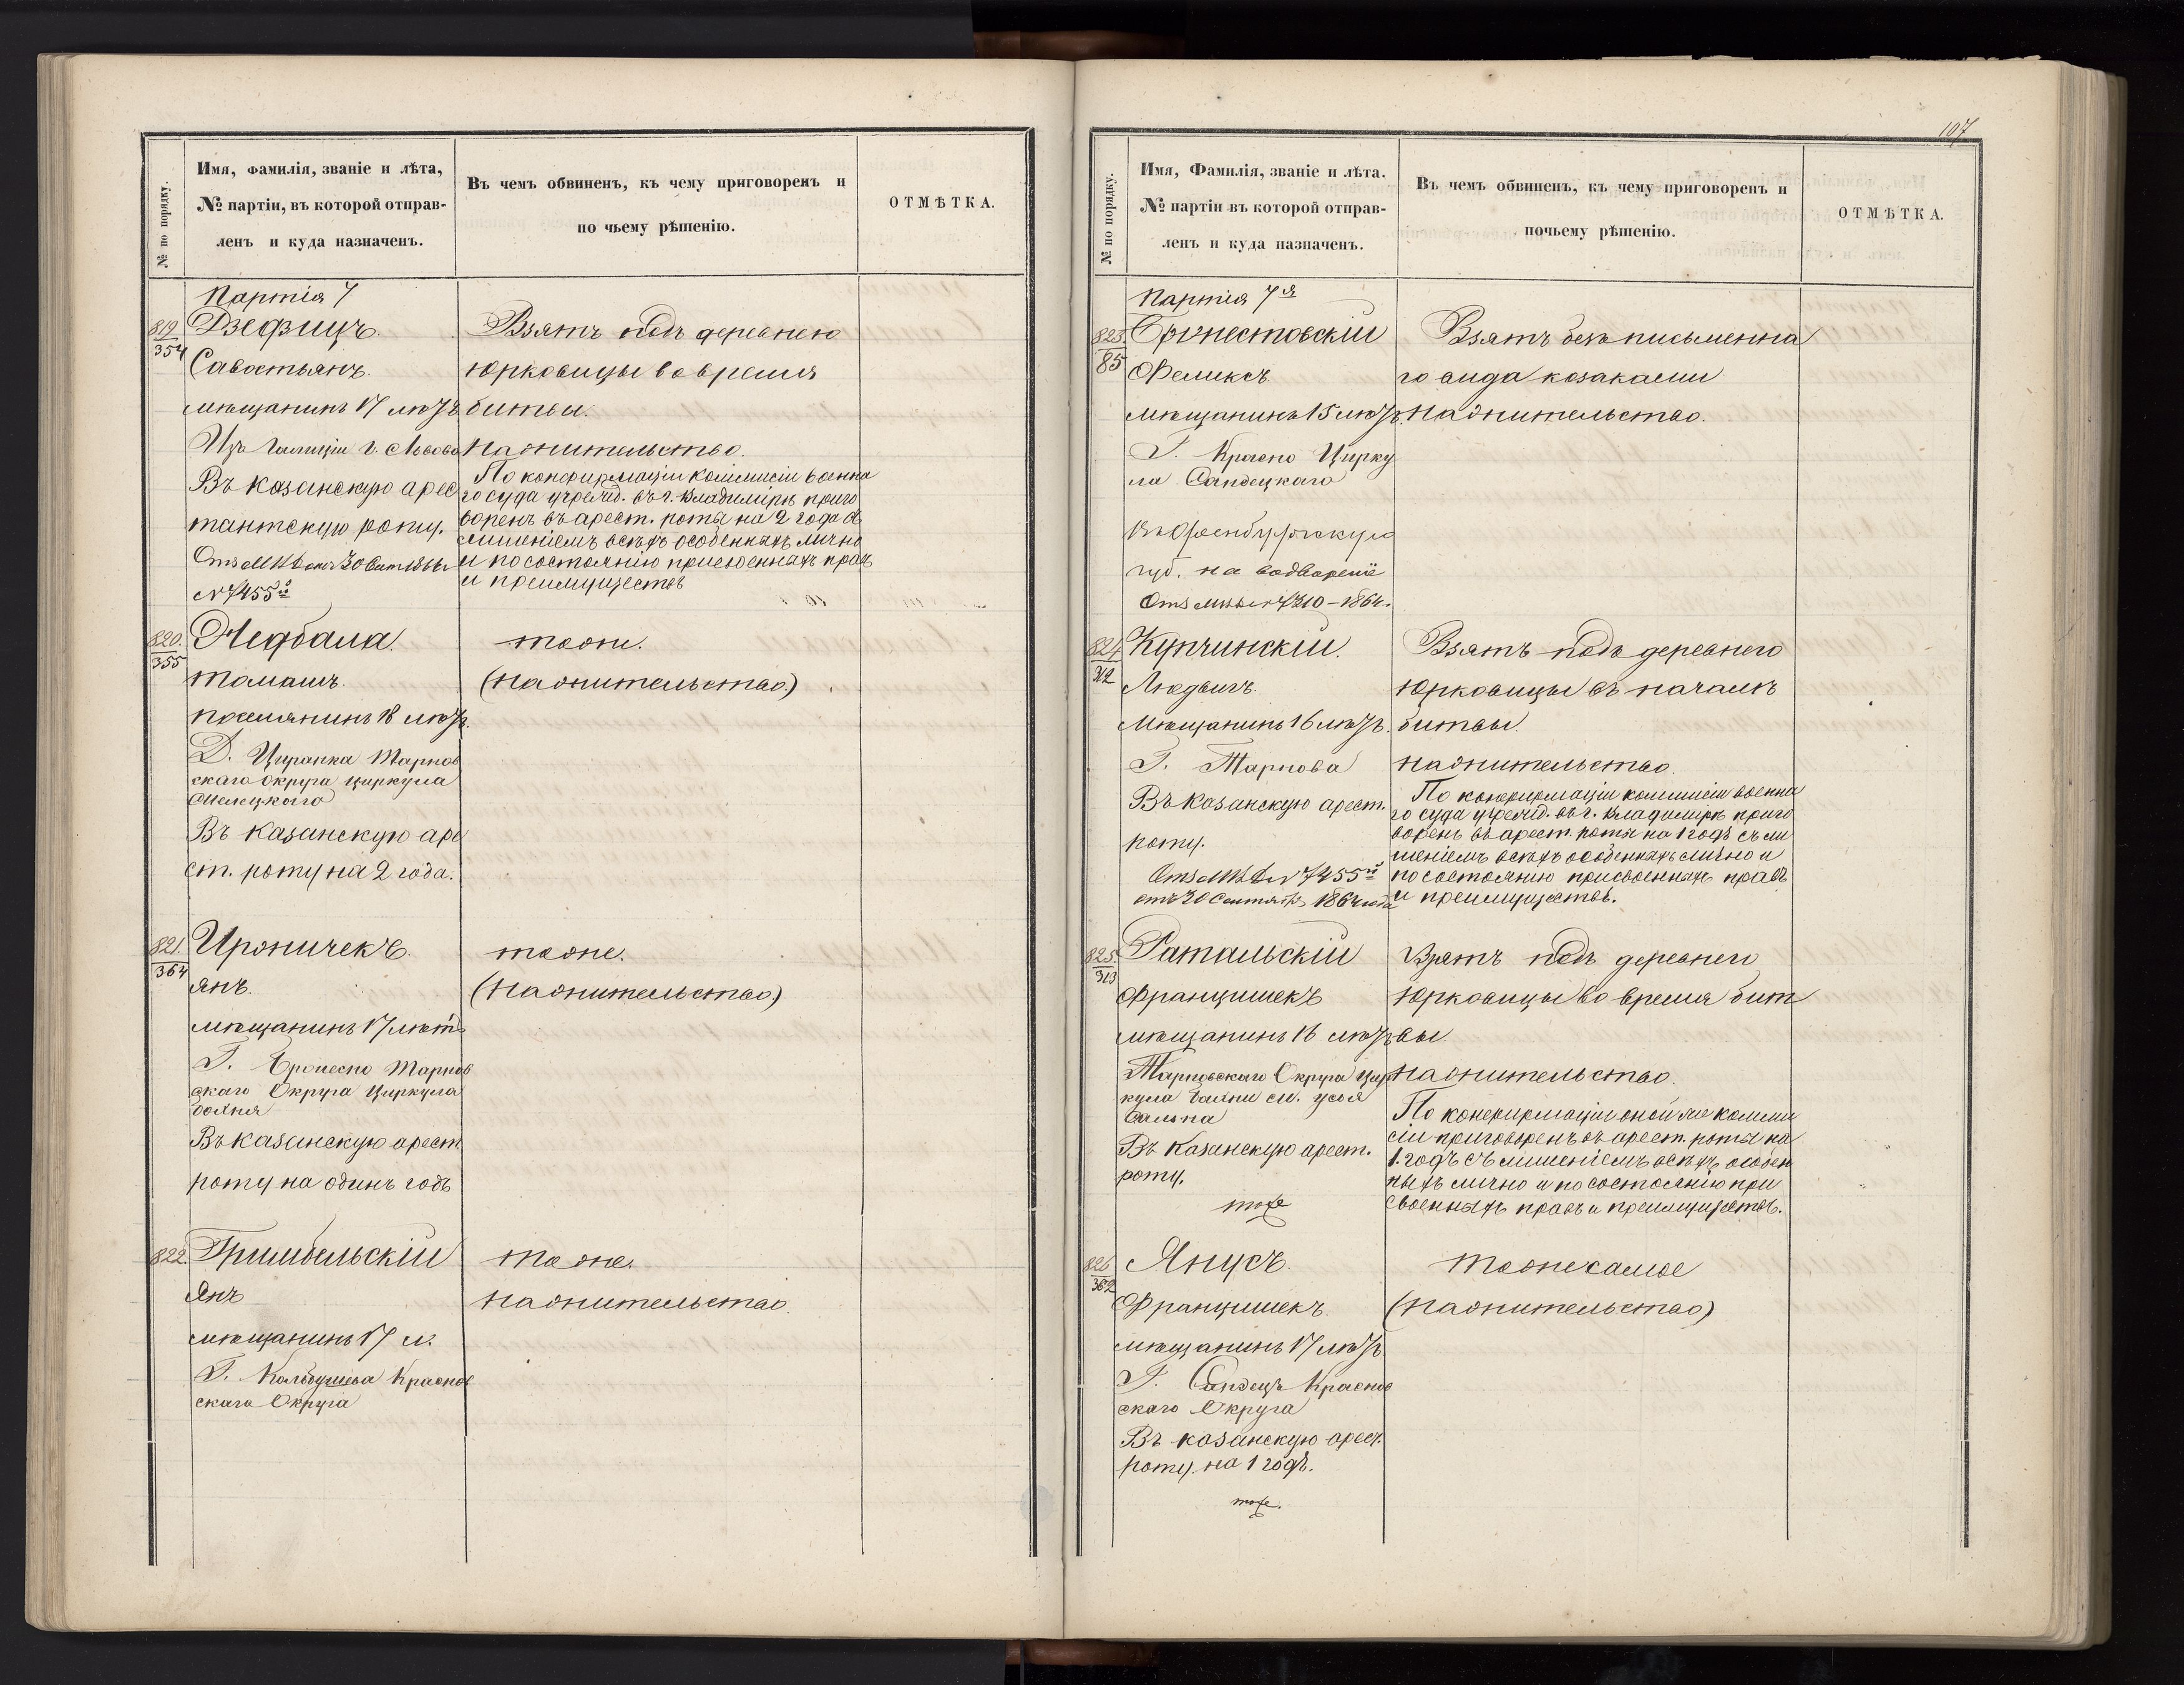 № по порядку.
Имя, фамилія, званіе и лѣта,
№ партіи, въ которой отправ-
ленъ и куда назначенъ.
Въ чемъ обвиненъ, къ чему приговоренъ и
по чьему рѣшенію.
ОТМѢТКА.
Партія 7
819
354
Дзедзицъ.
Савостьянъ.
мѣщанинъ 17 лѣтъ
Изъ Галиціи г. Львова
Въ казанскую арес
тантскую роту.
30 Сент 1864г
№ 7455й
Взятъ подъ деревнею
Юрковицы во время
битвы.
На жительство.
По конфирмаціи коммисіи военна
го суда учрежд. въ г. Владимірѣ приго
воренъ въ арест. роты на 2 года съ
лишеніемъ всѣхъ особенныхъ лично
и по состоянію присвоенныхъ правъ
и преимуществъ
820.
355
Недбала
Томашъ.
поселянинъ 18 лѣтъ.
Д. Циранка Тарнов
скаго округа циркула
Мелецкаго
Въ казанскую аре
ст. роту на 2 года.
тоже.
(На жительство.)
821.
364
Ироничекъ.
Янъ.
мѣщанинъ 17 лѣтъ
Г. Тарнов
скаго Округа Циркула
Бохня
Въ казанскую арест.
роту на одинъ годъ
тоже.
(На жительство)
822.
Гримбельскій
Янъ
мѣщанинъ 17 л.
Г. Кольбушева Краснов
скаго Округа
тоже.
На жительство.
107
№ по порядку.
Имя, Фамилія, званіе и лѣта.
№ партіи въ которой отправ-
ленъ и куда назначенъ.
Въ чемъ обвиненъ, къ чему приговоренъ и
почьему рѣшенію.
ОТМѢТКА.
Партія 7я
823.
85
Феликсъ.
мѣщанинъ 15 лѣтъ.
Г. Красно Цирку
ла Сандецкаго
Въ Оренбургскую
губ. на водвореніе
№ 7310 – 1864г.
Взятъ безъ письменна
го вида козаками
На жительство.
824
312
Купчинскій.
Людвигъ.
Мѣщанинъ 16 лѣтъ.
Г. Тарнова
Въ Казанскую арест.
роту.
№ 7455й
отъ 30 Сентября 1864 года
Взятъ подъ деревнею
Юрковицы въ началѣ
битвы.
На жительство.
По конфирмаціи коммисіи военна
го суда учрежд. въ г. Владимірѣ приго
воренъ въ арест. роты на 1 годъ съ ли
шеніемъ всѣхъ особенныхъ лично и
по состоянію присвоенныхъ правъ
и преимуществъ.
825.
313
Ратальскій
Францишекъ
мѣщанинъ 16 лѣтъ
Тарновскаго Округа цир
кула
Въ Казанскую арест.
роту.
тоже
Взятъ подъ деревнею
Юрковицы во время бит
вы.
На жительство.
По конфирмаціи оной же комми
сіи приговоренъ въ арест. роты на
1. годъ съ лишеніемъ всѣхъ особен
ныхъ лично и по состоянію при
своенныхъ правъ и преимуществъ.
826
362
Янусъ.
Францишекъ.
мѣщанинъ 17 лѣтъ
Г. Сандецъ Краснов
скаго Округа
Въ казанскую арест.
роту на 1 годъ.
тоже.
Тоже самое
(На жительство)